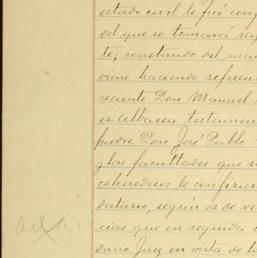 estado civil le fué con
del que se tomará ra
te; constando del ma
viene haciendo refere
reciente Don Manuel
es Albacea testamen
padre Don José Pablo
y las facultades que s
coherederos le confirie
datario, según es de ve
cias que en seguida c
dano Juez en vista de l